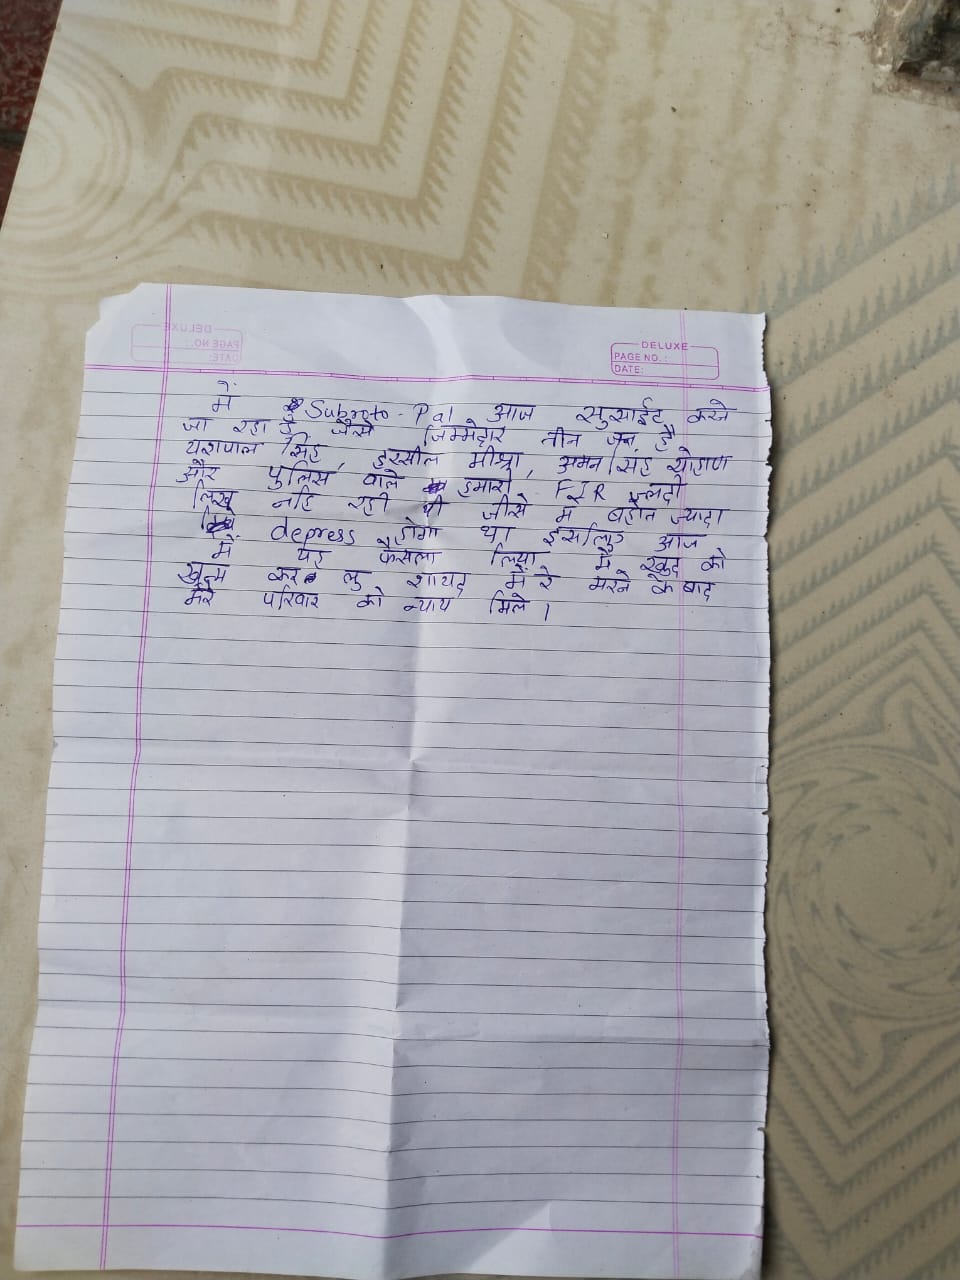 DELUXE
PAGE NO. :
DATE:
में Subroto-Pal आज सुसाईट करने
जा रहा हु जीसे जिम्मेदार तीन जन है
यशपाल सिंह, हरसील मीश्रा, अमन सिंह चौहाण
और पुलिस वाले हमारी FIR जल्दी
लिख नहि रही थी जीसे में बहोत ज्यादा
depress होगा था इसलिए आज
में यह फैसला लिया में खुद को
खुत्म कर लु शायद में रे मरने के बाद
मेरे परिवार को न्याय मिले।